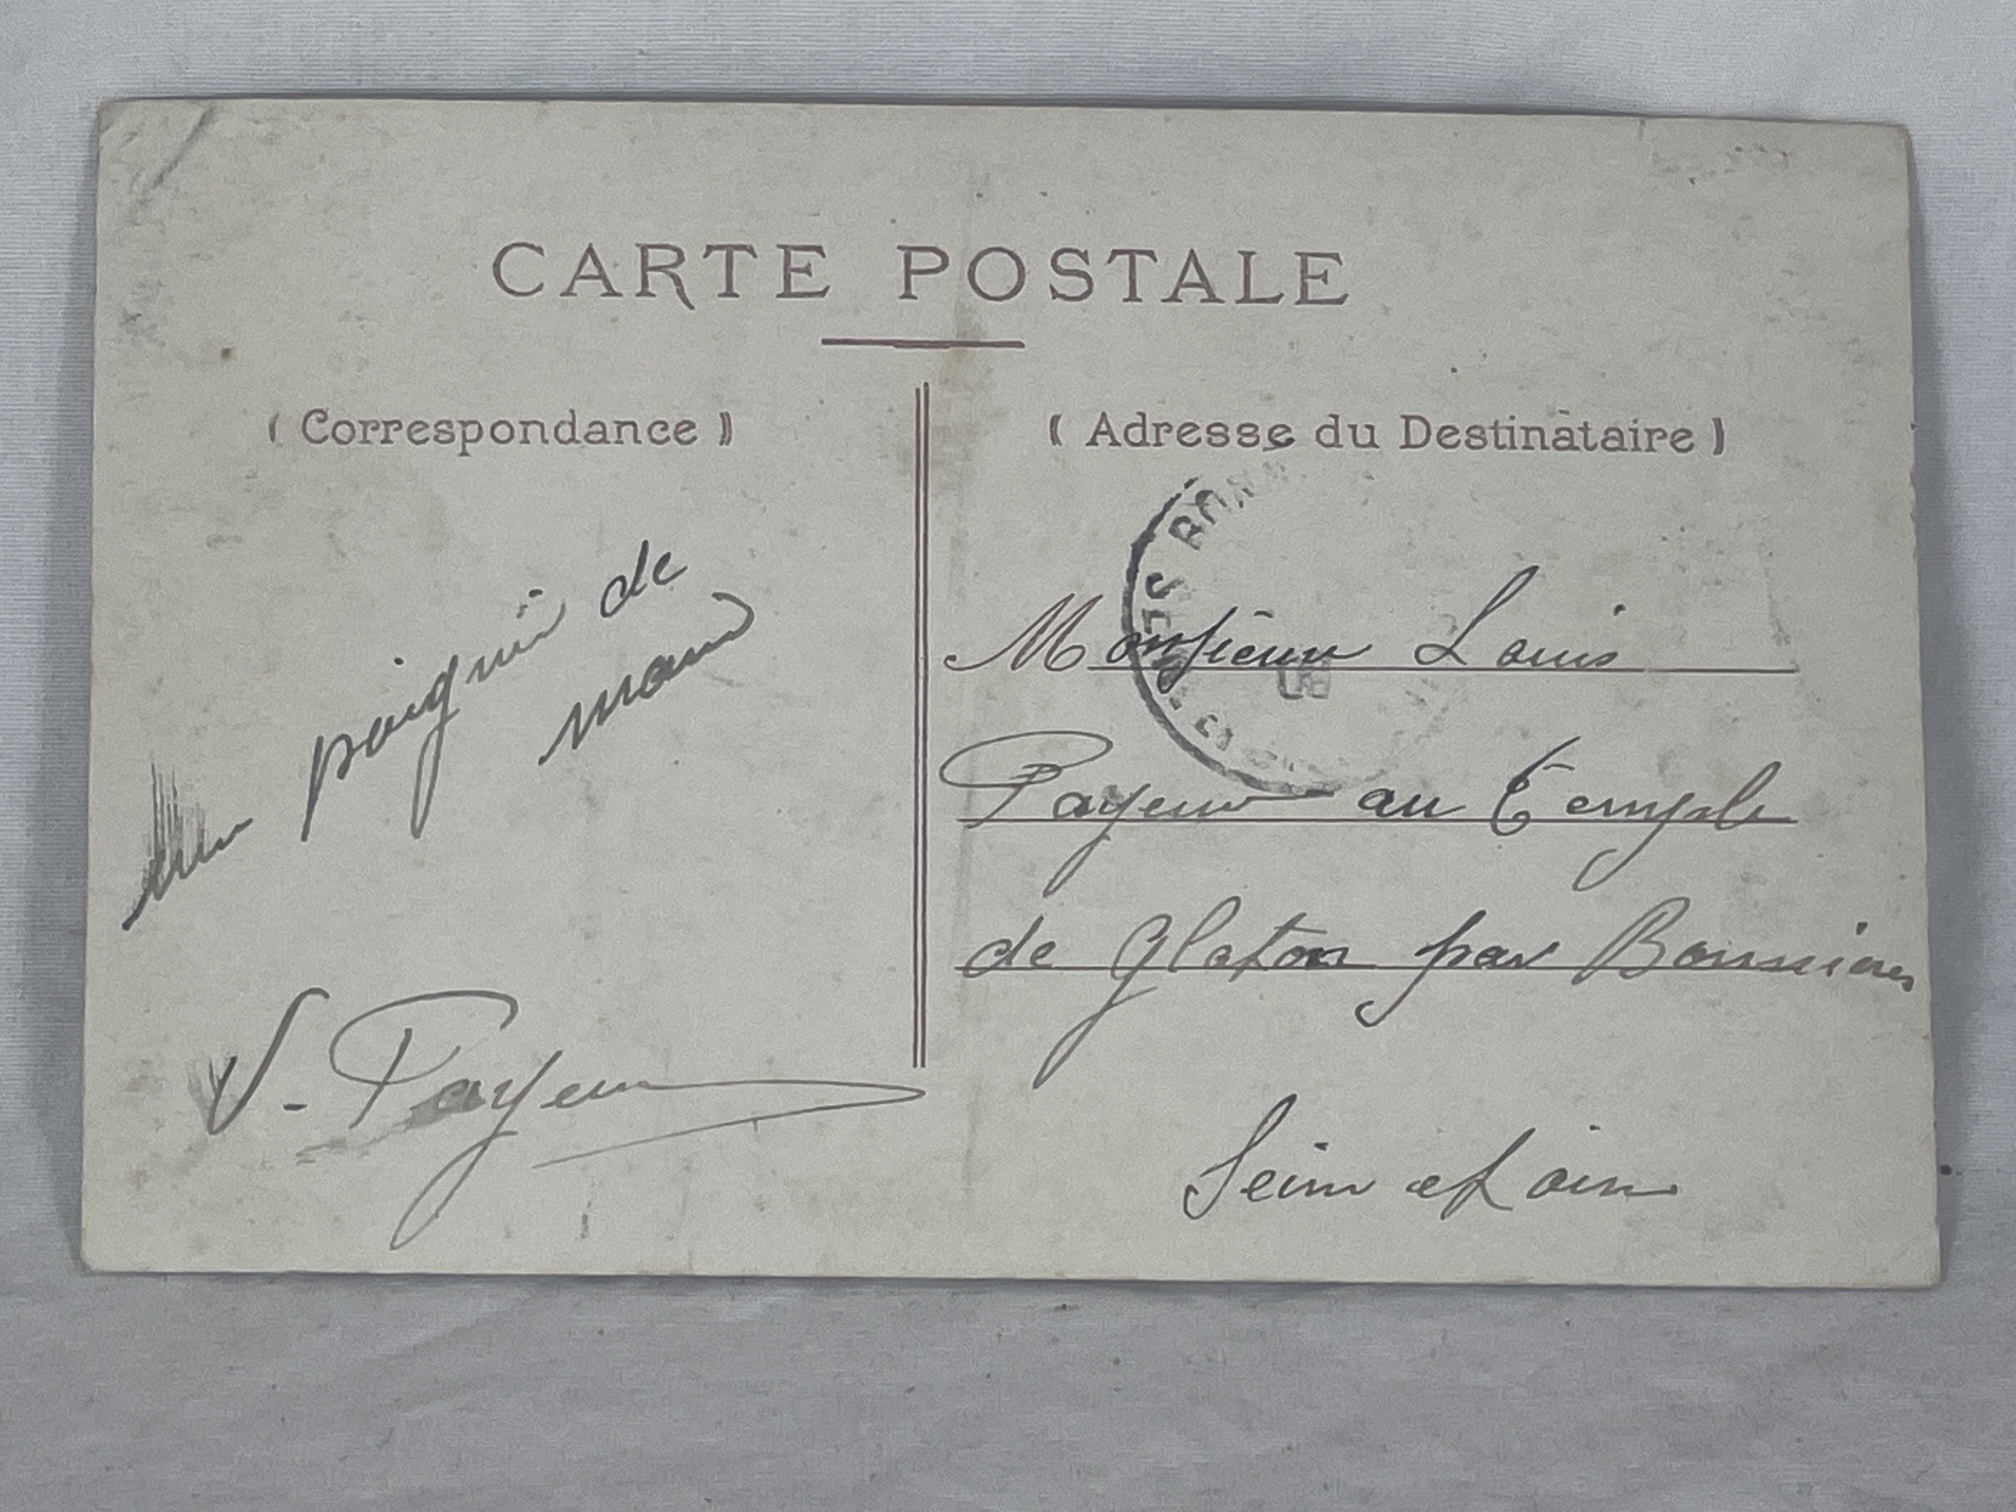 CARTE POSTALE
( Correspondance )
( Adresse du Destinataire )
un poignié de
main
V. Payeur
Monsieur Louis
Payeur au Temple
de Glaton par Bonnières
Seine et Loire